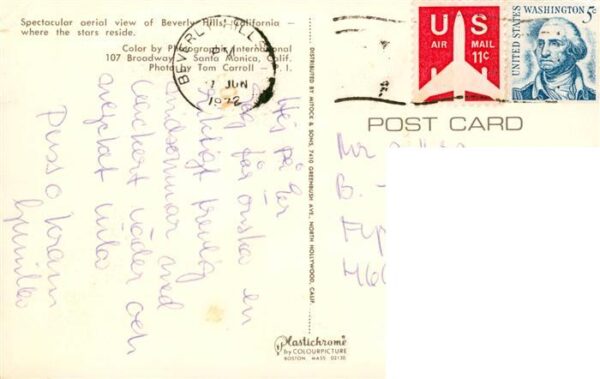 Spectacular aerial view of Beverly Hills, California –
where the stars reside.
Color by Photographs International
107 Broadway – Santa Monica, Calif.
Photo by Tom Carroll – P. I.
BEVERLY HILLS
PM
7 JUN
1972
US
AIR MAIL
11¢
UNITED STATES
WASHINGTON 5¢
POST CARD
DISTRIBUTED BY MITOCK & SONS, 7410 GREENBUSH AVE., NORTH HOLLYWOOD, CALIF.
Plastichrome
by COLOURPICTURE
BOSTON, MASS 02130
Hej på Er
får önska en
riktigt trevlig
midsommar med
vackert väder och
mycket
Puss o kram
Gunilla
Mr
B.